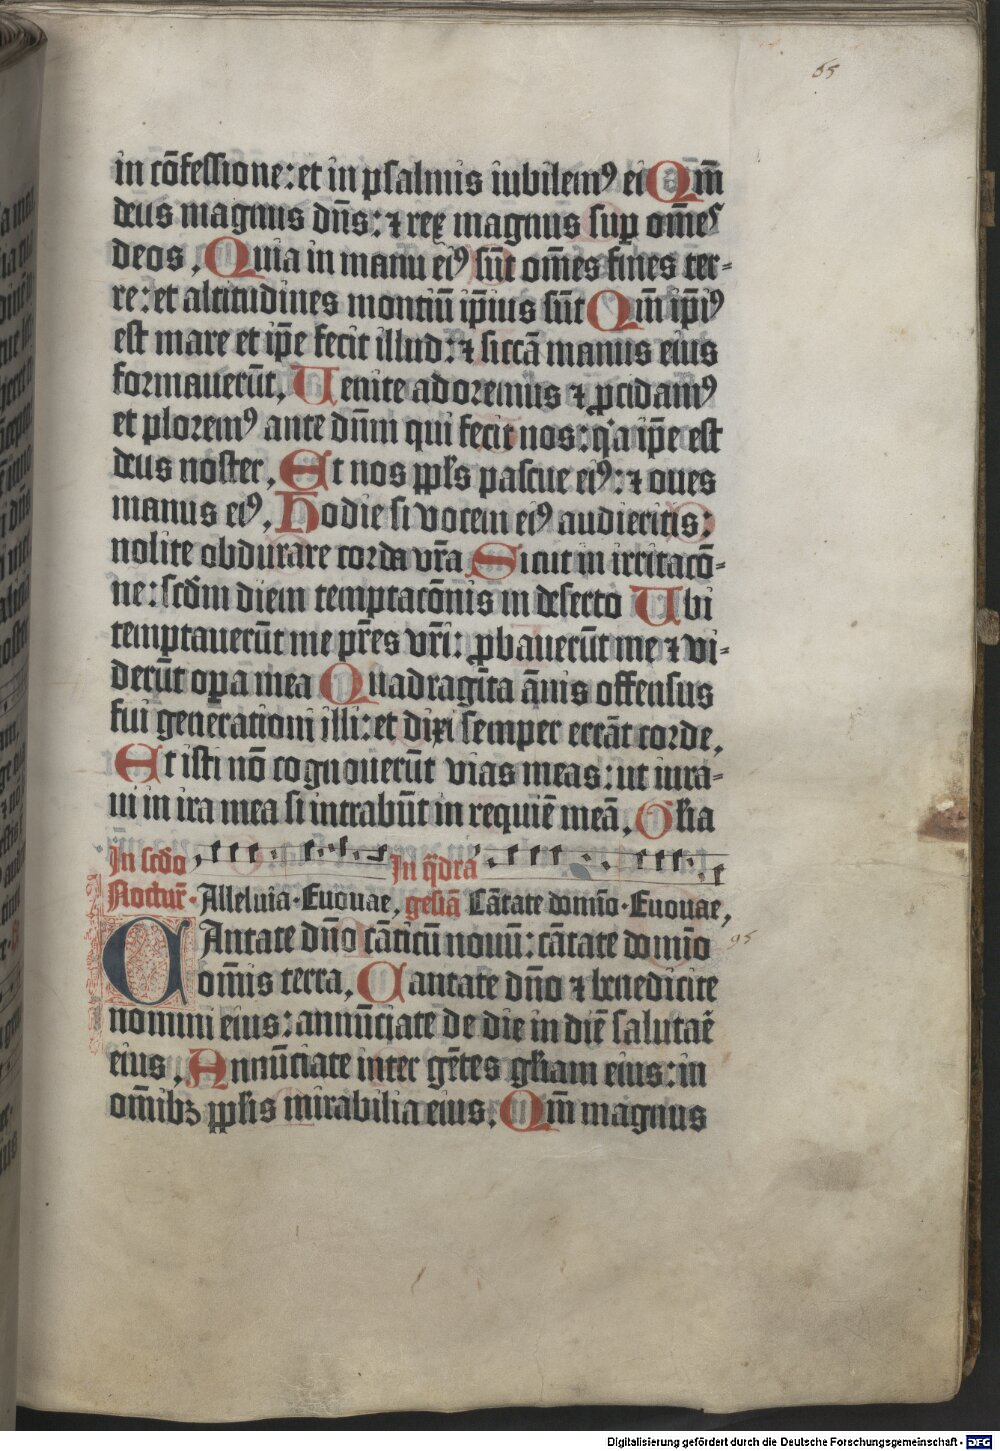 65
in cōfessione: et in psalmis iubilemꝰ ei Qm̄
deus magnus dn̄s: ⁊ rex magnus suꝑ om̄es
deos. Quia in manu eiꝰ sūt om̄es fines ter-
re: et altitudines montiū ip̄ius sūt Qm̄ ip̄iꝰ
est mare et ip̄e fecit illud: ⁊ siccā manus eius
formauerūt. Uenite adoremus ⁊ ꝓcidamꝰ
et ploremꝰ ante dn̄m qui fecit nos: q'a ip̄e est
deus noster. Et nos ppl̄s pascue eiꝰ: ⁊ oues
manus eiꝰ. Hodie si vocem eiꝰ audieritis:
nolite obdurare corda vr̄a Sicut in irritacō-
ne: scd̄m diem temptacōnis in deserto Ubi
temptauerūt me pr̄es vr̄i: ꝓbauerūt me ⁊ vi-
derūt oꝑa mea Quadragīta ānis offensus
fui generationi illi: et dixi semper errāt corde.
Et isti nō cognouerūt vias meas: ut iura-
ui in ira mea si intrabūt in requiē meā. Gl'ia
In scd̄o In q̄dra
Noctur̄. Alleluia. Euouae, gesiā Cātate domīo. Euouae,
CAntate dn̄o cāticū nouū: cātate domīo
om̄is terra. Cantate dn̄o ⁊ benedicite
nomini eius: annūciate de die in diē salutaē
eius. Annūciate inter gētes gl'iam eius: in
om̄ibꝫ ppl'is mirabilia eius. Qm̄ magnus
95
Digitalisierung gefördert durch die Deutsche Forschungsgemeinschaft - DFG